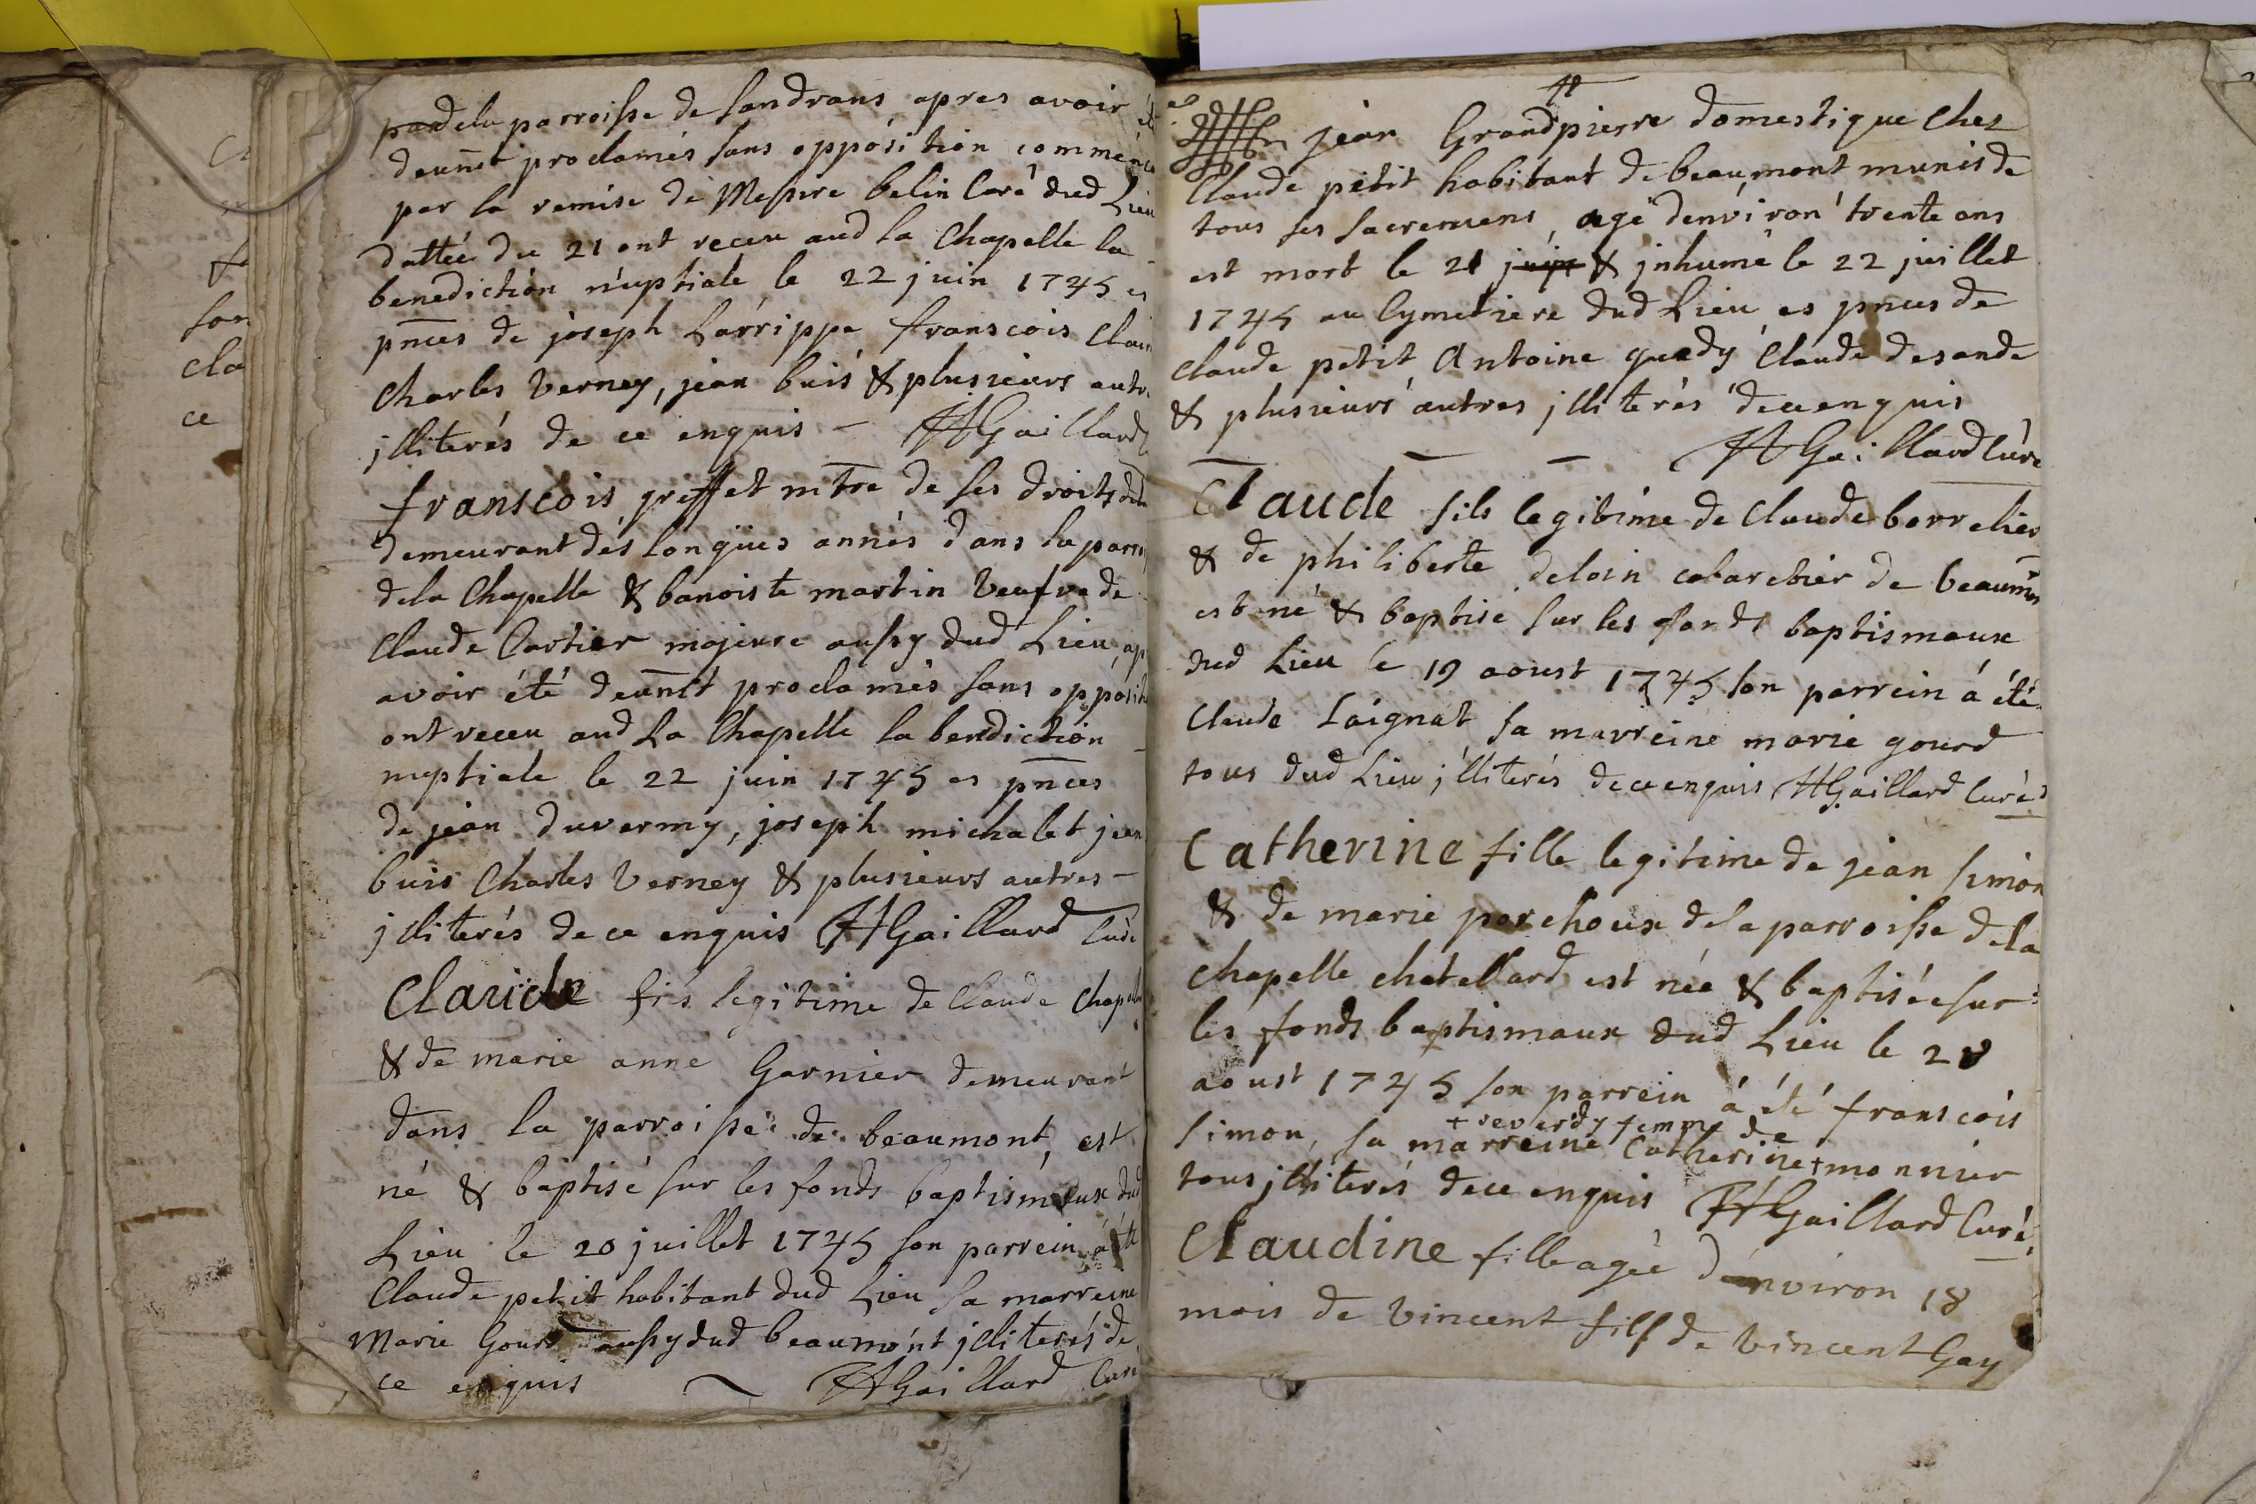 dela parroisse de sandrans apres avoir été
deümt proclamés sans opposition comme
par la remise de Messire belin Curé dud Lieu
dattée du 21 ont receu aud la Chapelle la
benediction nuptiale le 22 juin 1745 es
pnces de joseph Larrippe franscois
Charles Verney, jean buis & plusieurs autr
jlliterés de ce enquis – HGaillard
franscois greffet mtre de ses droits
demeurant dés longües annés dans la parr
dela Chapelle & banoiste martin veufve de
Claude Cartier majeure aussy dud Lieu, ap
avoir été deümt proclamés sans opposit
ont receu aud La Chapelle la bendiction
nuptiale le 22 juin 1745 es pnces
de jean duvermy, joseph michalet jean
buis Charles Verney & plusieurs autres –
jlliterés de ce enquis HGaillard Curé
Claude fils legitime de Claude Chap
& de marie anne Garnier demeurant
dans la parroisse de beaumont, est
né & baptisé sur les fonds baptismaux dud
Lieu le 20 juillet 1745 son parrein a été
Claude petit habitant dud Lieu sa marreine
Marie Gourd aussy dud beaumont jlliterés de
ce enquis HGaillard Curé
ce
son
cla
ce
jean Grandpierre domestique chez
Claude petit habitant de beaumont munis de
tous ses sacremens, agé denviron trente ans
est mort le 21 juin & jnhumé le 22 juillet
1745 au Cymetiere dud Lieu es pnces de
claude petit Antoine guedy Claude desande
& plusieurs autres jlliterés de ce enquis
HGaillard Curé
Claude fils legitime de Claude borrelier
& de philiberte deloin cabaretier de beaumont
est né & baptisé sur les fonds baptismaux
dud Lieu le 19 aoust 1745 son parrein á été
Claude Laignat sa marreine marie gourd
tous dud Lieu jlliterés de ce enquis HGaillard Curé
Catherine fille legitime de jean simon
& de marie porchoux dela parroisse dela
chapelle chatellard est née & baptisée sur
les fonds baptismaux dud Lieu le 28
aoust 1745 son parrein á été franscois
+ reverdy femme de
simon, sa marreine Catherine + monnier
tous jlliterés de ce enquis HGaillard Curé
Claudine fille agée denviron 18
mois de vincent fils de vincent Gay